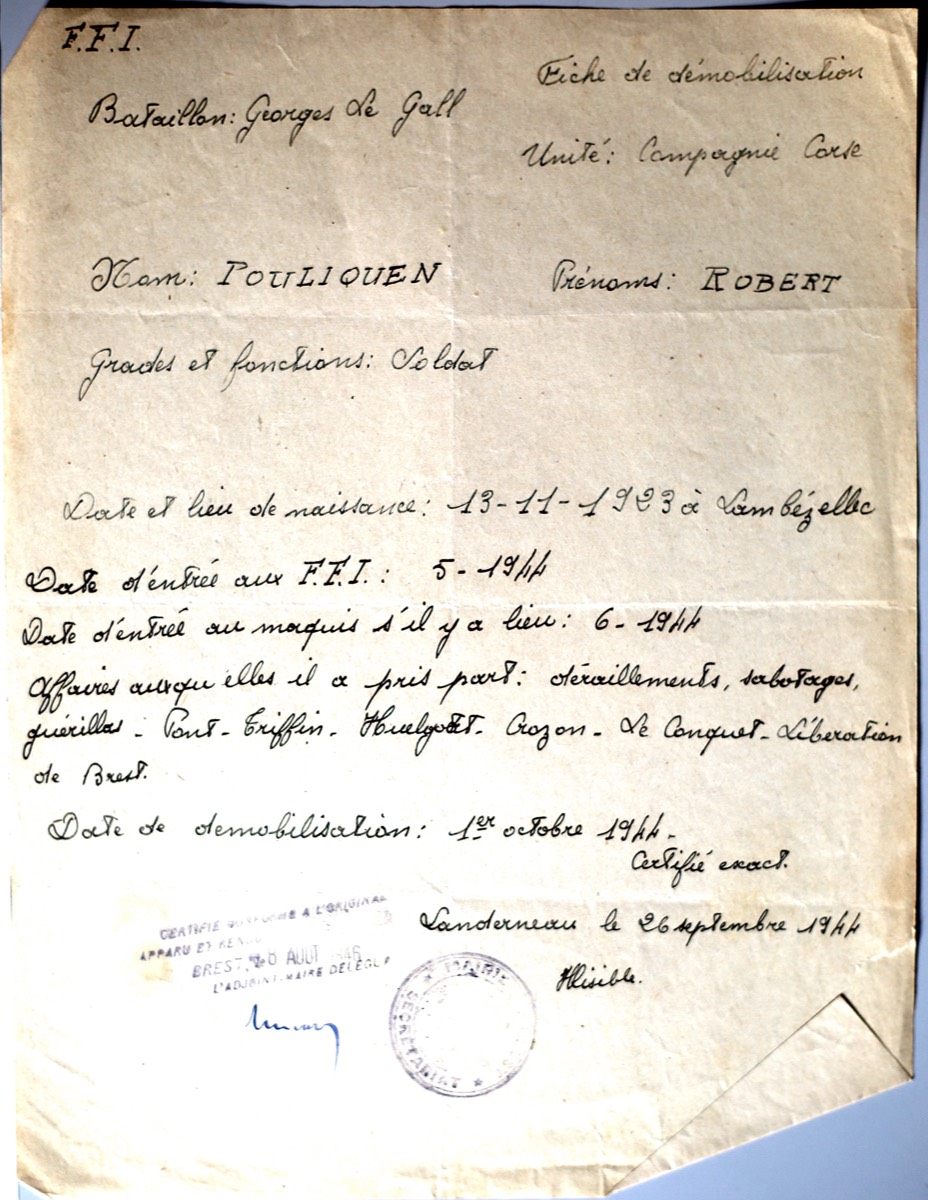 F.F.I.
Fiche de démobilisation
Bataillon: Georges Le Gall
Unité: Compagnie Corse
Nom: POULIQUEN
Prénoms: ROBERT
Grades et fonctions: Soldat
Date et lieu de naissance: 13-11-1923 à Lambézellec
Date d'éntrée aux F.F.I.: 5-1944
Date d'éntrée au maquis s'il y a lieu: 6-1944
Affaires auxquelles il a pris part: déraillements, sabotages,
guérillas - Pont-Triffin - Huelgoat - Crozon - Le Conquet - Libération
de Brest.
Date de demobilisation: 1er octobre 1944.
Certifié exact.
Landerneau le 26 septembre 1944
Illisible.
CERTIFIE CONFORME A L'ORIGINAL
APPARU ET RENDU
BREST, AOUT 1946
L'ADJOINT-MAIRE DÉLÉGUÉ
MAIRIE
SECRETARIAT